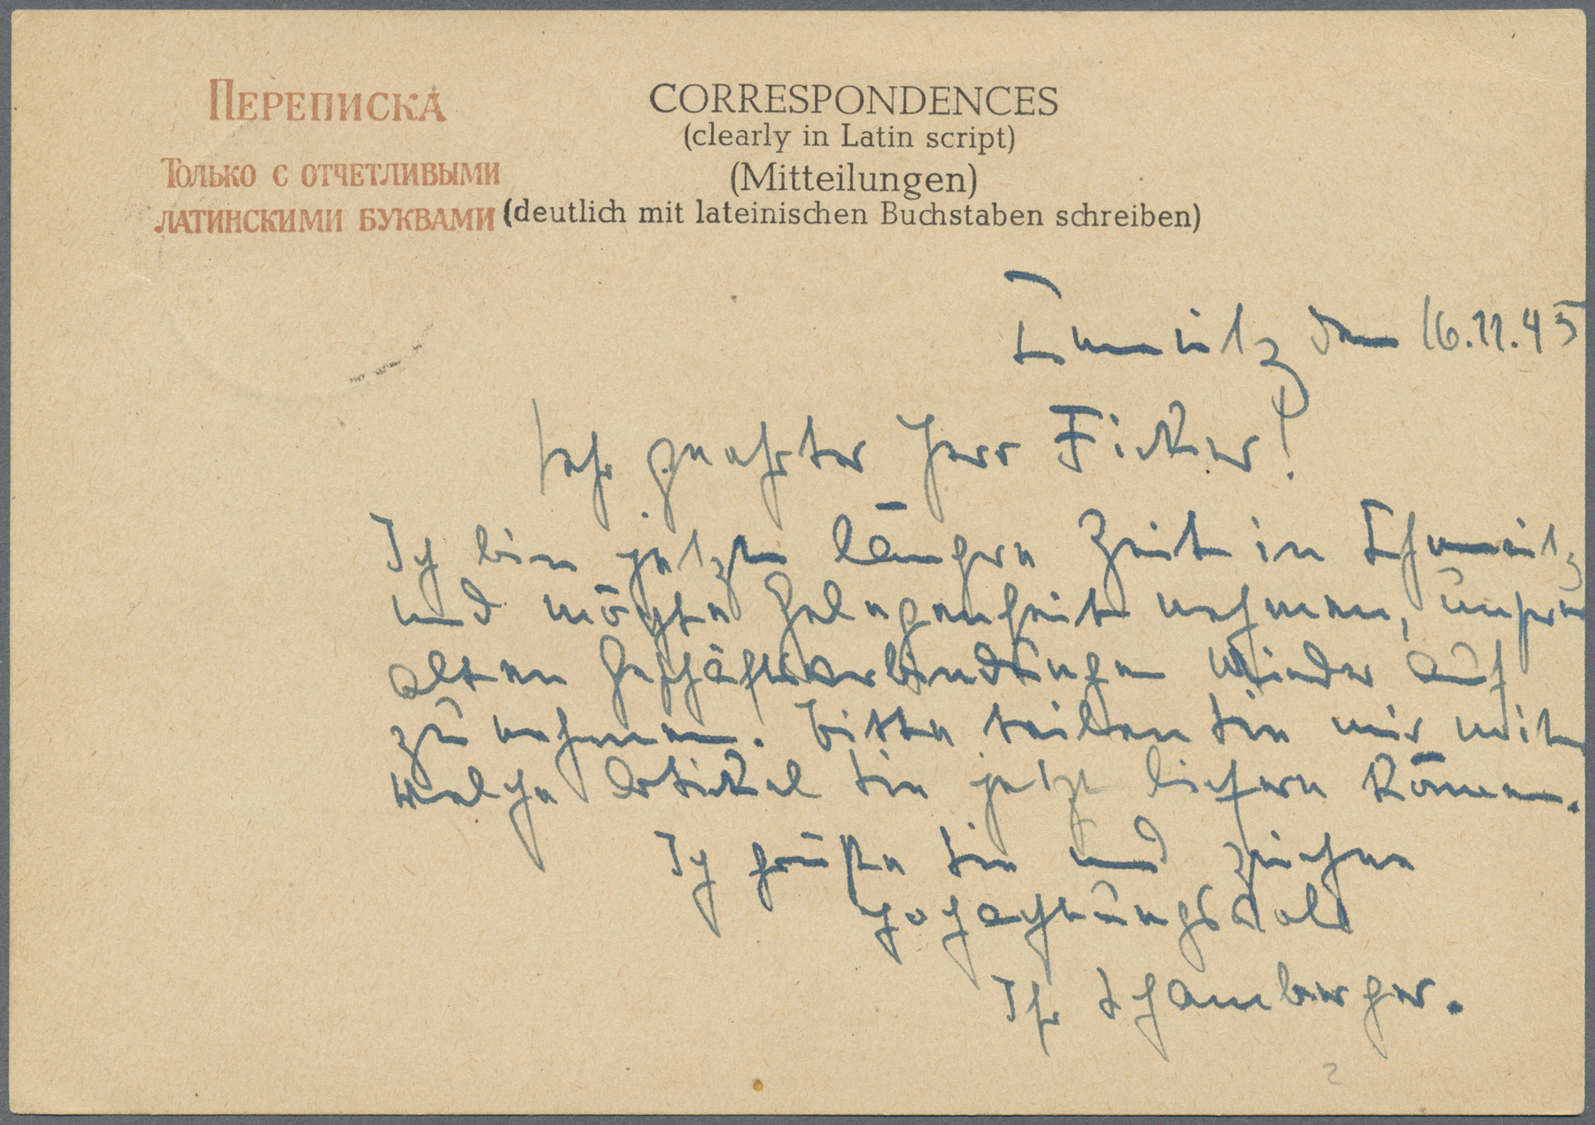 ПЕРЕПИСКА
ТОЛЬКО С ОТЧЕТЛИВЫМИ
ЛАТИНСКИМИ БУКВАМИ
CORRESPONDENCES
(clearly in Latin script)
(Mitteilungen)
(deutlich mit lateinischen Buchstaben schreiben)
den 16.11.45
Sehr geehrter Herr Ficker!
Ich bin jetzt längere Zeit in
und möchte Gelegenheit nehmen, unsere
alten Geschäftsverbindungen wieder auf
zu nehmen. Bitte teilen Sie mir mit
welche Artikel Sie jetzt liefern können.
Ich grüße Sie und zeichne
hochachtungsvoll
Ihr Schamberger.